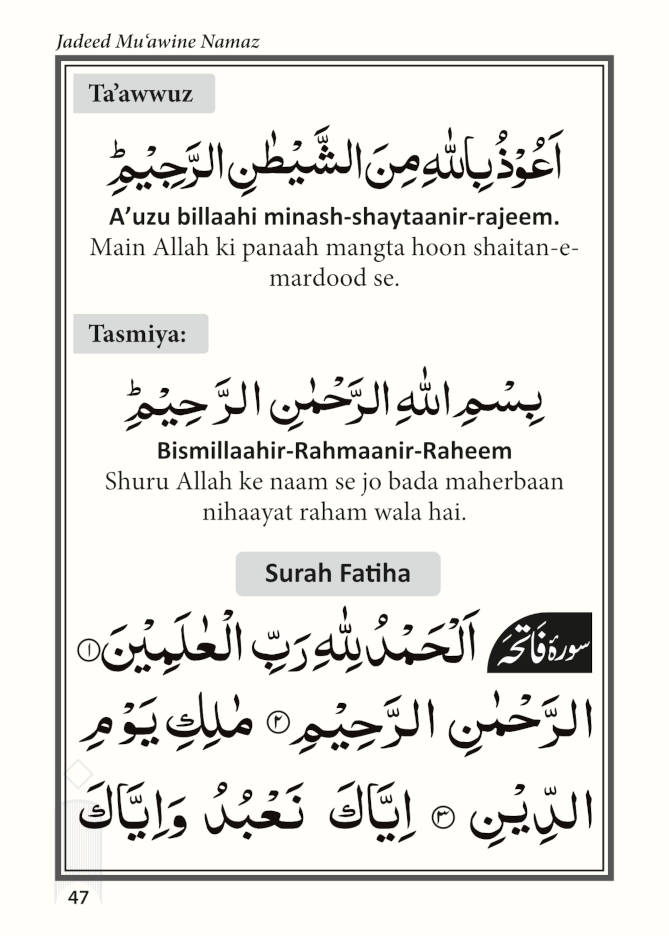 Jadeed Mu‘awine Namaz
Ta’awwuz
اَعُوْذُ بِاللّٰهِ مِنَ الشَّيْطٰنِ الرَّجِيْمِ ؕ
A’uzu billaahi minash-shaytaanir-rajeem.
Main Allah ki panaah mangta hoon shaitan-e-
mardood se.
Tasmiya:
بِسْمِ اللّٰهِ الرَّحْمٰنِ الرَّحِيْمِ ؕ
Bismillaahir-Rahmaanir-Raheem
Shuru Allah ke naam se jo bada maherbaan
nihaayat raham wala hai.
Surah Fatiha
سورۂ فَاتحَہ اَلْحَمْدُ لِلّٰهِ رَبِّ الْعٰلَمِيْنَ ۝۱
الرَّحْمٰنِ الرَّحِيْمِ ۝۲ مٰلِكِ يَوْمِ
الدِّيْنِ ۝۳ اِيَّاكَ نَعْبُدُ وَاِيَّاكَ
47